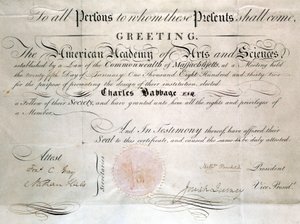 To all Persons to whom these Presents shall come,
GREETING.
The American Academy of Arts and Sciences
established by a Law of the Commonwealth of Massachusetts, at a Meeting held
the twenty fifth Day of January One Thousand Eight Hundred and thirty two
for the purpose of promoting the design of their institution, elected
Charles Babbage ESQ.
a Fellow of their Society, and have granted unto him all the rights and privileges of
a Member.
And in Testimony thereof have affixed their
Seal to this certificate, and caused the same to be duly attested.
Attest
President
Vice Presid.